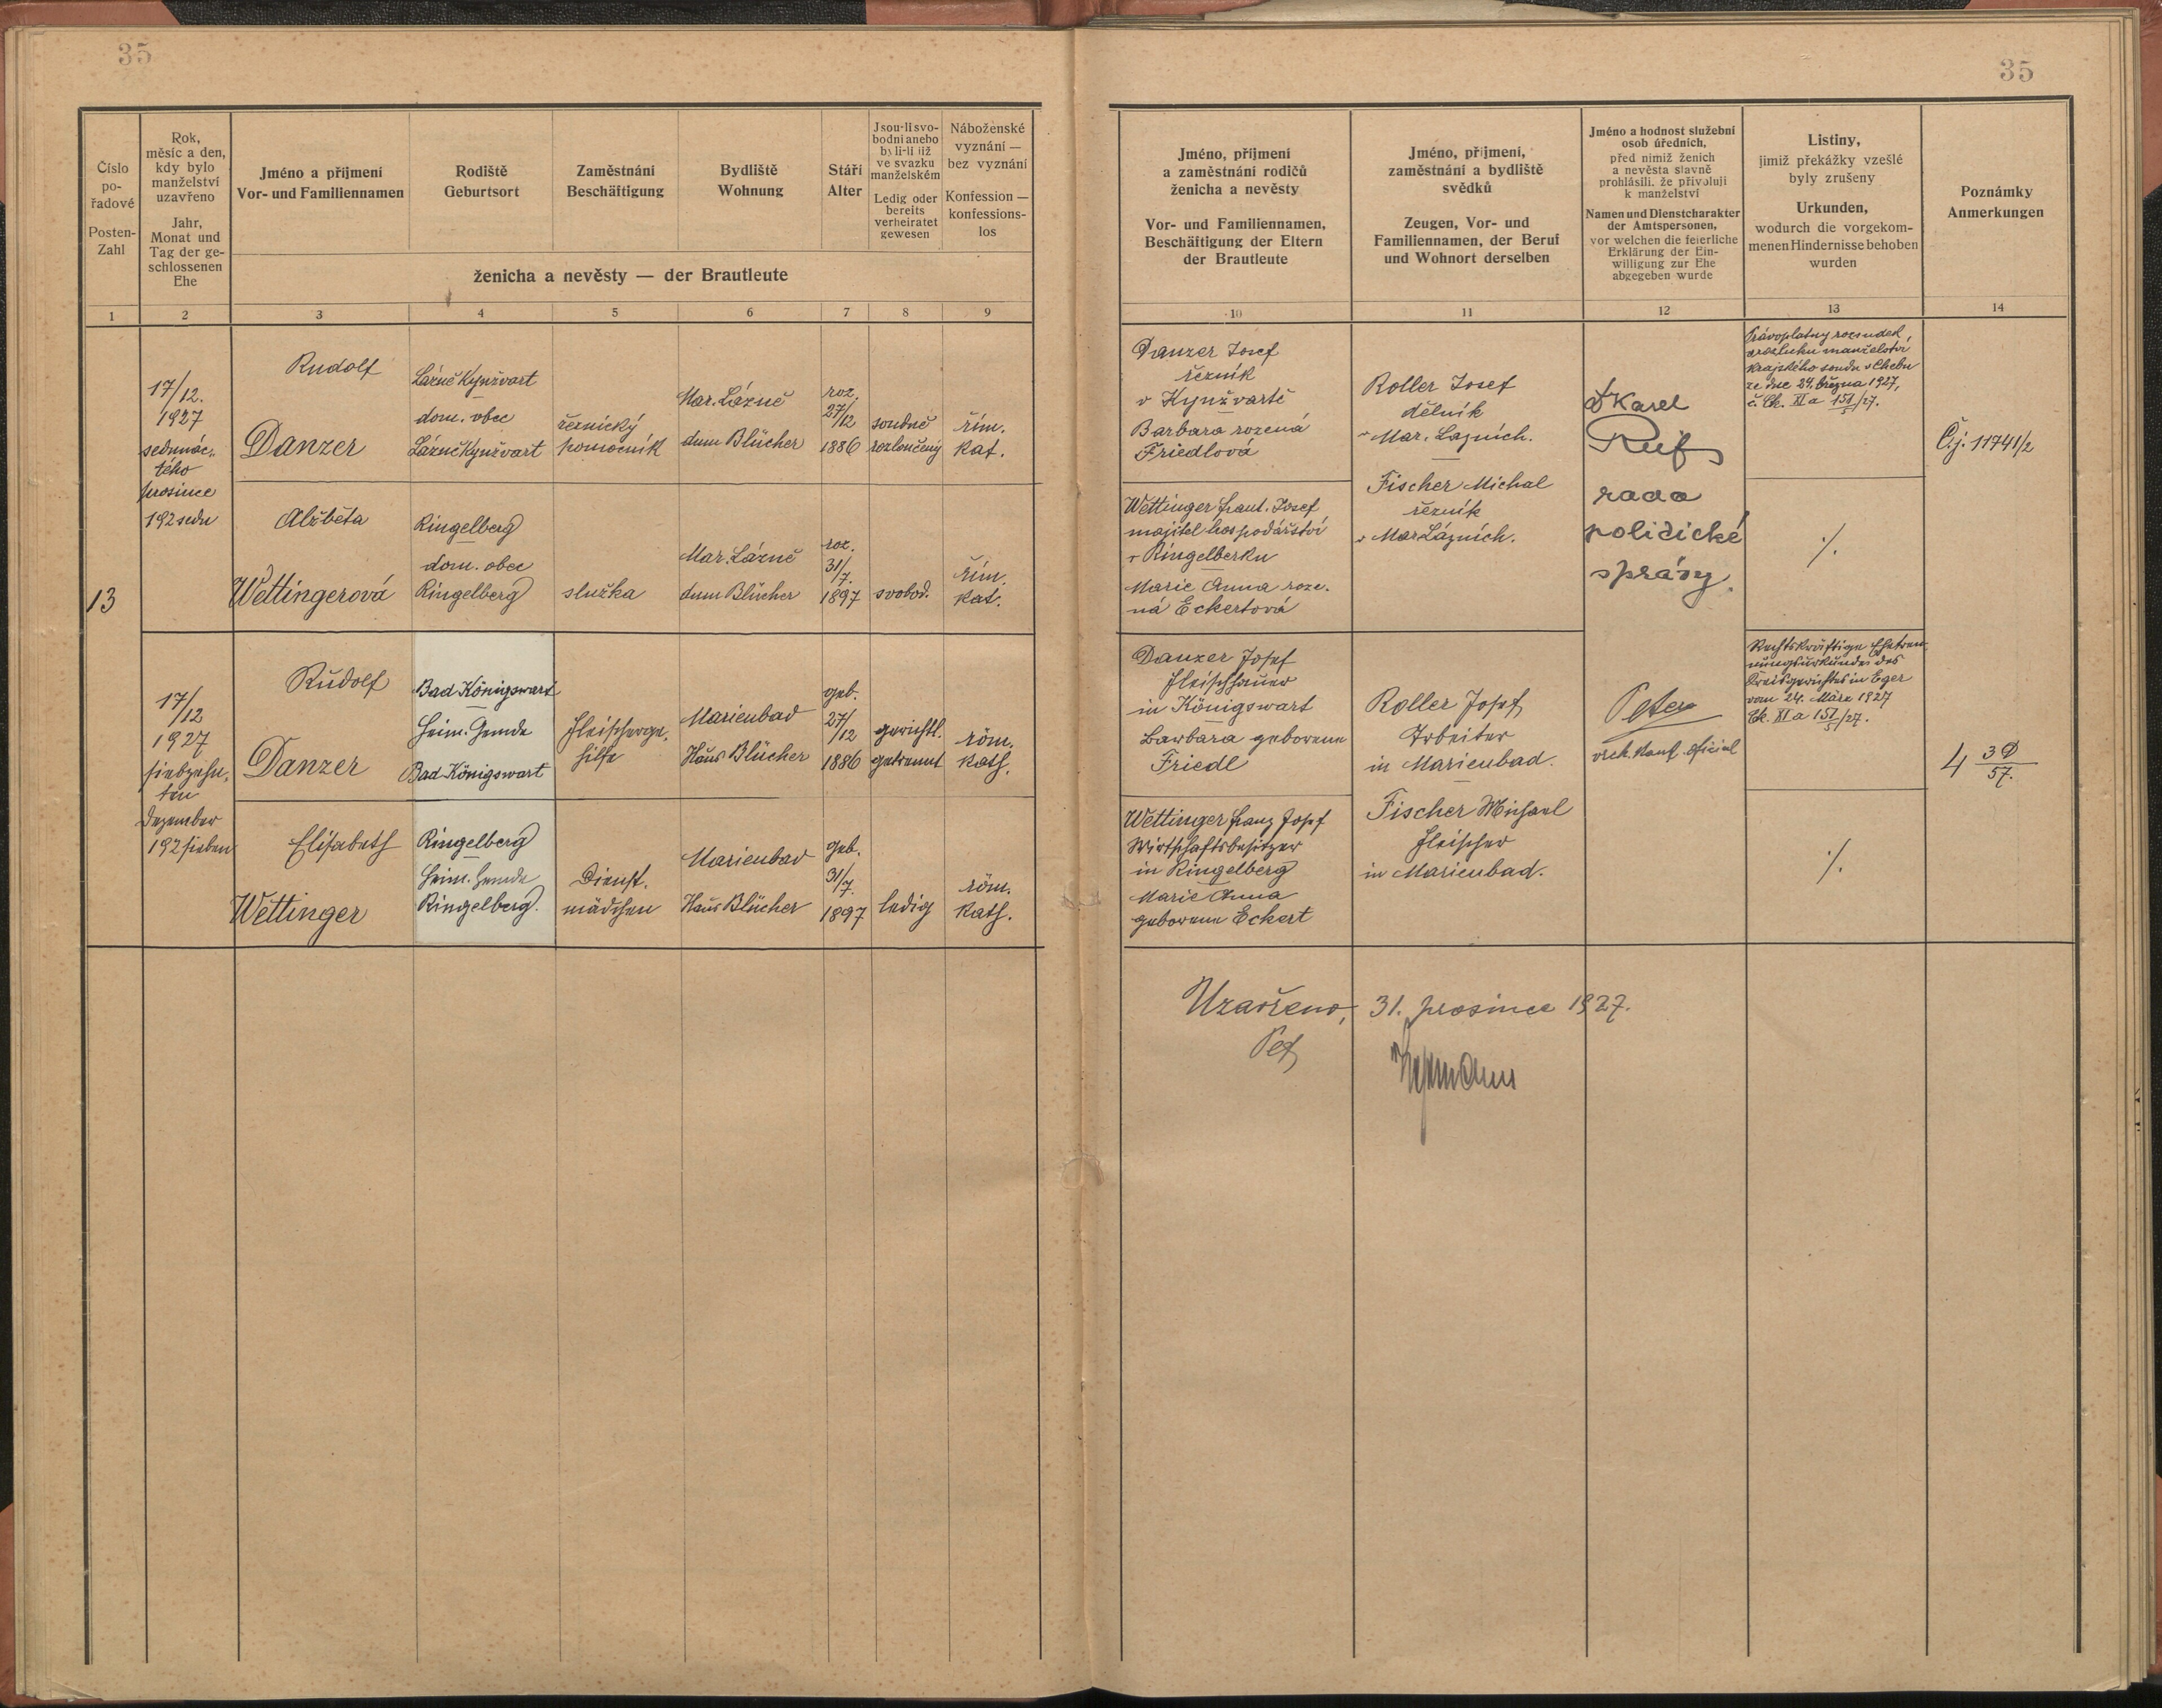 35
35
Číslo
po-
řadové
Posten-
Zahl
Rok,
měsíc a den,
kdy bylo
manželství
uzavřeno
Jahr,
Monat und
Tag der ge-
schlossenen
Ehe
Jméno a příjmení
Vor- und Familiennamen
Rodiště
Geburtsort
Zaměstnání
Beschäftigung
Bydliště
Wohnung
Stáří
Alter
Jsou-li svo-
bodni anebo
byli-li již
ve svazku
manželském
Ledig oder
bereits
verheiratet
gewesen
Náboženské
vyznání —
bez vyznání
Konfession —
konfessions-
los
ženicha a nevěsty — der Brautleute
Jméno, příjmení
a zaměstnání rodičů
ženicha a nevěsty
Vor- und Familiennamen,
Beschäftigung der Eltern
der Brautleute
Jméno, příjmení,
zaměstnání a bydliště
svědků
Zeugen, Vor- und
Familiennamen, der Beruf
und Wohnort derselben
Jméno a hodnost služební
osob úředních,
před nimiž ženich
a nevěsta slavně
prohlásili, že přivolují
k manželství
Namen und Dienstcharakter
der Amtspersonen,
vor welchen die feierliche
Erklärung der Ein-
willigung zur Ehe
abgegeben wurde
Listiny,
jimiž překážky vzešlé
byly zrušeny
Urkunden,
wodurch die vorgekom-
menen Hindernisse behoben
wurden
Poznámky
Anmerkungen
1 2 3 4 5 6 7 8 9 10 11 12 13 14
13
17/12.
1927
sedmnác-
tého
prosince
192sedm
Rudolf
Danzer
Lázně Kynžvart
dom. obec
Lázně Kynžvart
řeznický
pomocník
Mar. Lázně
dum Blücher
roz.
27/12
1886
soudně
rozloučený
řím.
kat.
Alžběta
Wettingerová
Ringelberg
dom. obec
Ringelberg
služka
Mar. Lázně
dum Blücher
roz.
31/7.
1897
svobod.
řím.
kat.
17/12
1927
siebzehn-
ten
Dezember
192sieben
Rudolf
Danzer
Bad Königswart
Heim. Gemde
Bad Königswart
Fleischerge-
hilfe
Marienbad
Haus Blücher
geb.
27/12
1886
gerichtl.
getrennt
röm.
kath.
Elisabeth
Wettinger
Ringelberg
Heim. Gemde
Ringelberg.
Dienst-
mädchen
Marienbad
Haus Blücher
geb.
31/7.
1897
ledig
röm.
kath.
Danzer Josef
řezník
v Kynžvartě
Barbara rozená
Friedlová
Wettinger Frant. Josef
majitel hospodářství
v Ringelberku
Marie Anna roze-
ná Eckertová
Danzer Josef
Fleischhauer
in Königswart
Barbara geborene
Friedl
Wettinger Franz Josef
Wirtschaftsbesitzer
in Ringelberg
Marie Anna
geborene Eckert
Roller Josef
dělník
v Mar. Lazních.
Fischer Michal
řezník
v Mar Lázních.
Roller Josef
Arbeiter
in Marienbad.
Fischer Michael
Fleischer
in Marienbad.
Karel
rada
politické
správy.
Peter
oficiál
Právoplatny rozsudek
o rozluku manželství
krajského soudu v Chebu
ze dne 24. března 1927,
č. Ck. XI a 151/27.
5
·/.
Rechtskräftige Ehetren-
nungsurkunde des
Kreisgerichtes in Eger
vom 24. März 1927
Ck. XI a 151/27.
5
·/.
Č.j. 11741/2
4
57.
Uzavřeno, 31. prosince 1927.